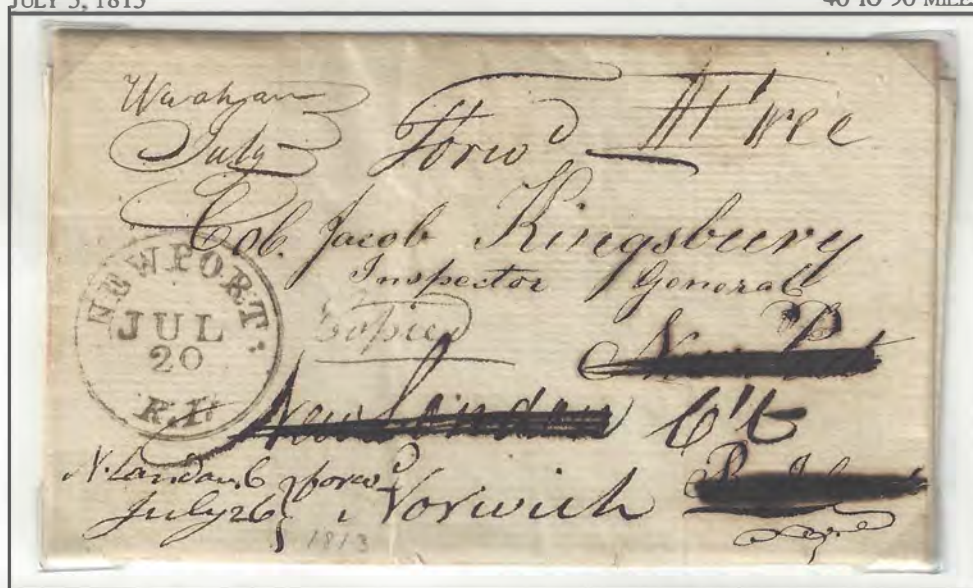 JULY 5, 1813
40 TO 90 MILE
July
Forwd Free
Col. Jacob Kingsbury
Inspector General
NEWPORT.
JUL
20
R.I.
Copied
New Port
New London Ct
N. London C forwd
July 26 Norwich
1813